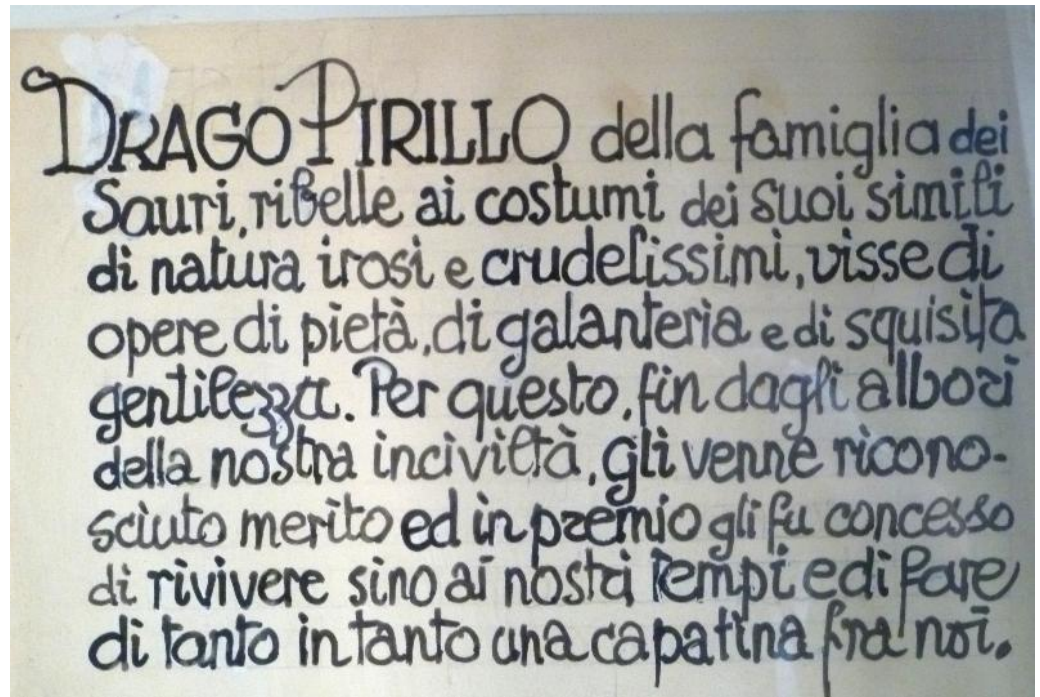 DRAGO PIRILLO della famiglia dei
Sauri, ribelle ai costumi dei suoi simili
di natura irosi e crudelissimi, visse di
opere di pietà, di galanteria e di squisita
gentilezza. Per questo, fin dagli albori
della nostra inciviltà, gli venne ricono-
sciuto merito ed in premio gli fu concesso
di rivivere sino ai nostri tempi e di fare
di tanto in tanto una capatina fra noi.